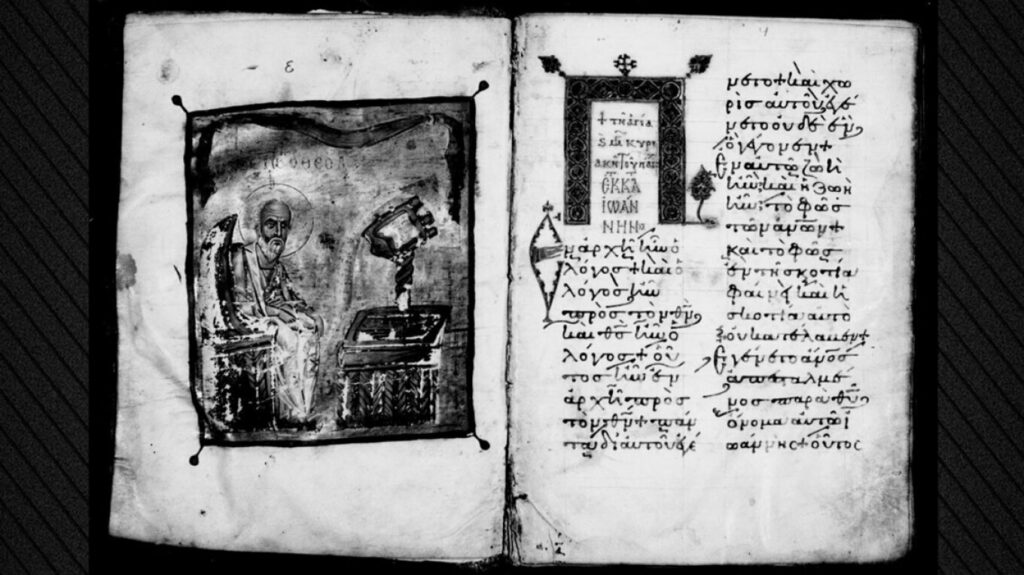 ε
Ο ΘΕΟΛ
+ τῆ ἁγία
κυρι
ακῆ τοῦ
ΕΚ ΚΑ
ΙΩΑΝ
ΝΗΝ
Ἐν ἀρχῆ ἦν ὁ
λόγος + καὶ ὁ
λόγος ἦν
πρὸς τὸν θν̅
καὶ θς̅ ἦν ὁ
λόγος + οὗ
τος ἦν ἐν
ἀρχῆ πρὸς
τὸν θν̅ + πάν
τα δι αὐτοῦ ἐγέ
νετο + καὶ χω
ρὶς αὐτοῦ ἐγέ
νετο οὐδὲ ἓν
ὃ γέγονεν +
Ἐν αὐτῶ ζωὴ
ἦν. καὶ ἡ ζωὴ
ἦν τὸ φῶς
τῶν ἀν̅ων +
καὶ τὸ φῶς
ἐν τῆ σκοτία
φαίνει καὶ ἡ
σκοτία αὐτὸ
οὐ κατέλαβεν +
Ἐγένετο ἀν̅ος
ἀπεσταλμέ
νος παρὰ θυ̅
ὄνομα αὐτῶ ἰ
ωάννης + οὗτος